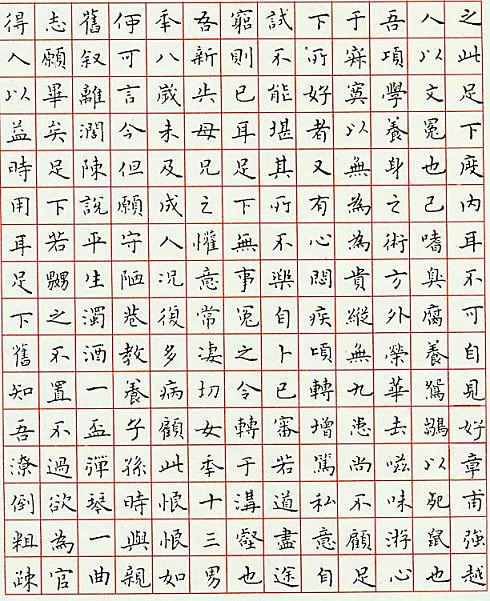 之此足下度內耳不可自見好章甫強越
人以文冕也己嗜臭腐養鴛鶵以死鼠也
吾頃學養身之術方外榮華去滋味游心
于寂寞以無為為貴縱無九患尚不顧足
下所好者又有心悶疾頃轉增篤私意自
試不能堪其所不樂自卜已審若道盡途
窮則已耳足下無事冤之令轉于溝壑也
吾新失母兄之懽意常凄切女年十三男
年八歲未及成人況復多病顧此恨恨如
何可言今但願守陋巷教養子孫時與親
舊叙離濶陳說平生濁酒一盃彈琴一曲
志願畢矣足下若嬲之不置不過欲為官
得人以益時用耳足下舊知吾潦倒粗疎